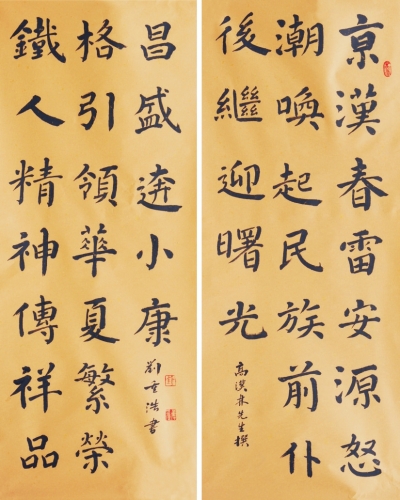 亰漢春雷安源怒
潮喚起民族前仆
後繼迎曙光
高 先生撰
鐵人精神傳祥品
格引領華夏繁榮
昌盛逩小康
劉 浩書